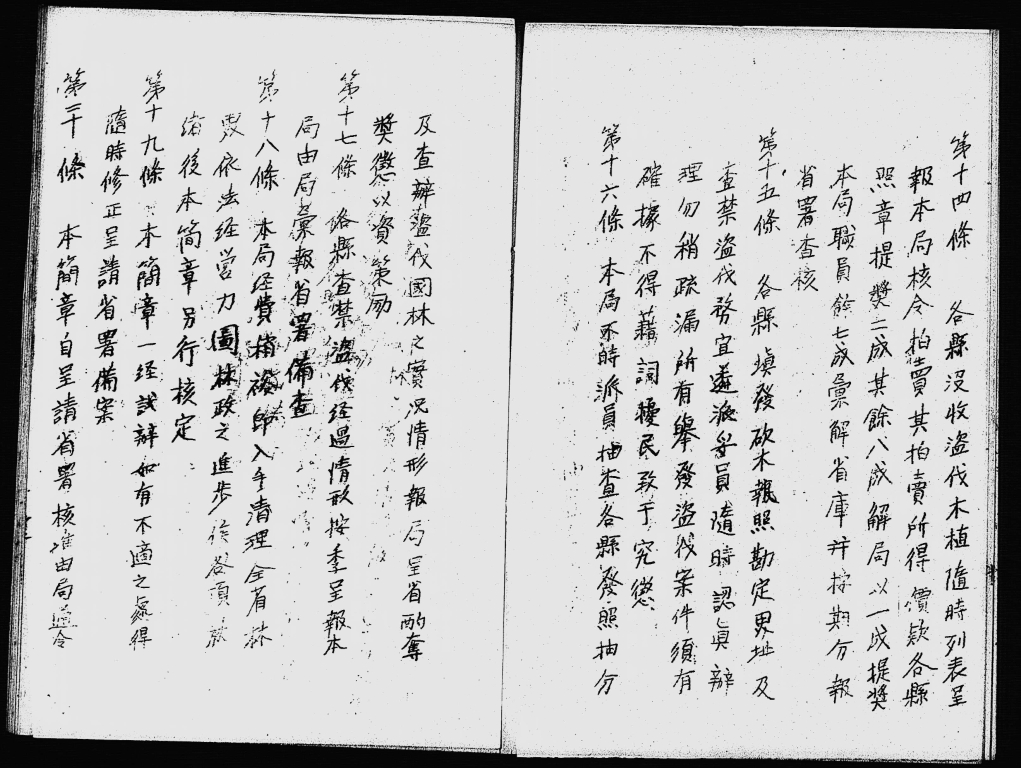 第十四條 各縣沒收盜伐木植隨時列表呈
報本局核令拍賣其拍賣所得價款各縣
照章提獎二成其餘八成解局以一成提獎
本局職員餘七成彙解省庫并按期分報
省署查核
第十五條 各縣填發砍木報照勘定界址及
查禁盜伐務宜遴派妥員隨時認眞辦
理勿稍疏漏所有舉發盜伐案件須有
確據不得藉詞擾民致于究懲
第十六條 本局不時派員抽查各縣發照抽分
及查辦盜伐國林之實况情形報局呈省酌奪
獎懲以資策勵
第十七條 各縣查禁盜伐經過情形按季呈報本
局由局彙報省署備查
第十八條 本局經費稍裕即入手清理全省林
依法經營力圖林政之進步 各項
後本簡章另行核定
第十九條 本簡章一經試辦如有不適之處得
隨時修正呈請省署備案
第二十條 本簡章自呈請省署核准由局通令